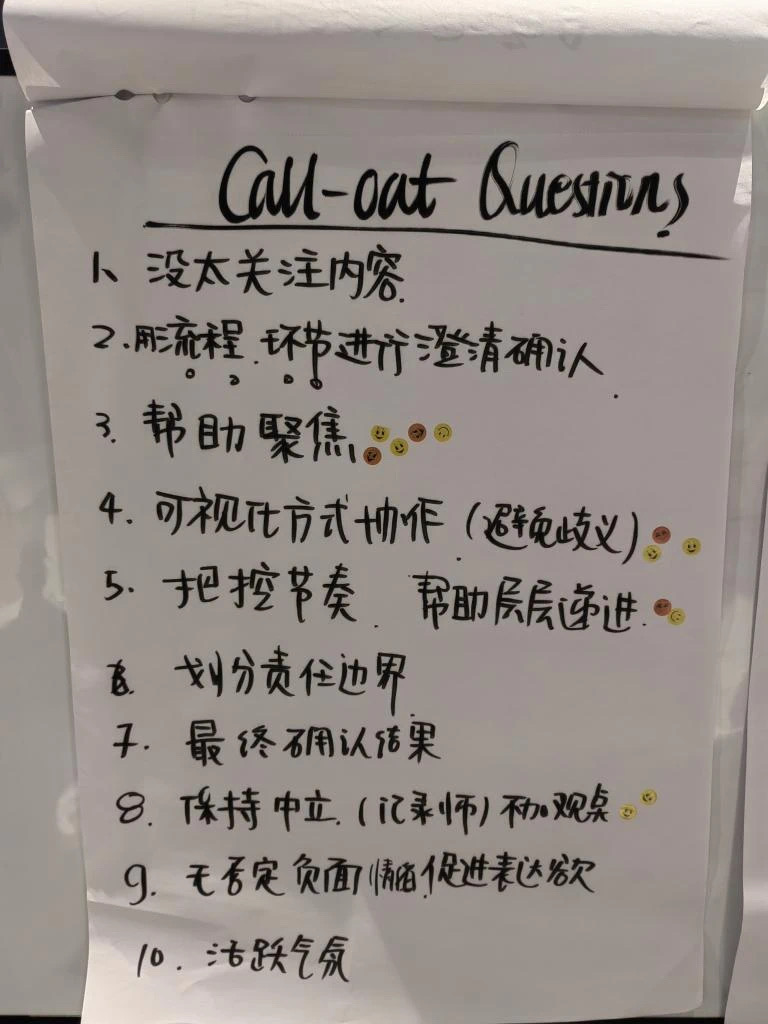 Call-out Questions
1、没太关注内容.
2.用流程.环节进行澄清确认.
3.帮助聚焦,
4.可视化方式协作.(避免歧义)
5.把控节奏.帮助层层递进.
6.划分责任边界
7.最终确认结果
8.保持中立.(记录师)不加观点
9.无否定负面情绪.促进表达欲
10.活跃气氛